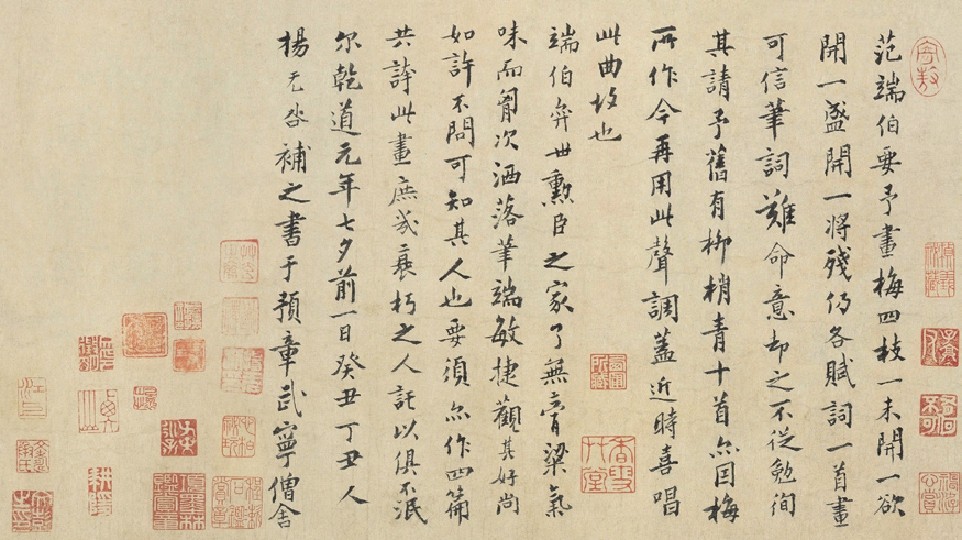 范端伯要予畫梅四枝一未開一欲
開一盛開一將殘仍各賦詞一首畫
可信筆詞難命意却之不從勉徇
其請予舊有柳梢青十首亦因梅
所作今再用此聲調蓋近時喜唱
此曲故也
端伯弈世勳臣之家了無膏粱氣
味而胷次洒落筆端敏捷觀其好尚
如許不問可知其人也要須亦作四篇
共誇此畫庶幾衰朽之人託以俱不泯
尔乾道元年七夕前一日癸丑丁丑人
楊无咎補之書于豫章武寧僧舍